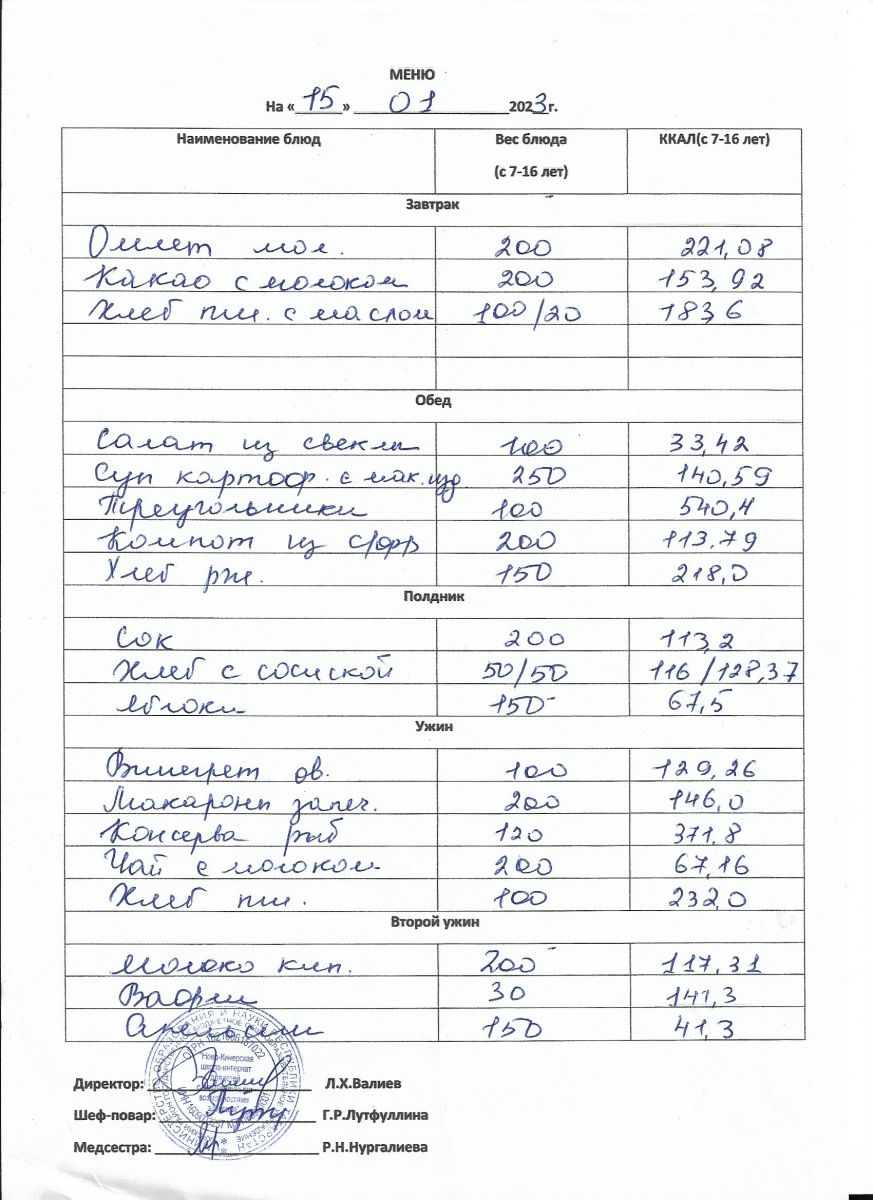 МЕНЮ
На «15» 01 2023г.
Наименование блюд Вес блюда ККАЛ(с 7-16 лет)
(с 7-16 лет)
Завтрак
Омлет мол. 200 221,08
Какао с молоком 200 153,92
Хлеб пш. с маслом 100/20 183,6
Обед
Салат из свеклы 100 33,42
Суп картоф. с мак.изд. 250 140,59
Треугольники 100 540,4
Компот из с/фр 200 113,79
Хлеб рж. 150 218,0
Полдник
Сок 200 113,2
Хлеб с сосиской 50/50 116/128,37
Яблоки 150 67,5
Ужин
Винегрет ов. 100 129,26
Макароны запеч. 200 146,0
Консерва рыб 120 371,8
Чай с молоком 200 67,16
Хлеб пш. 100 232,0
Второй ужин
Молоко кип. 200 117,31
Вафли 30 141,3
Апельсины 150 41,3
Директор: Л.Х.Валиев
Шеф-повар: Г.Р.Лутфуллина
Медсестра: Р.Н.Нургалиева
Ново-Кинерская
школа-интернат